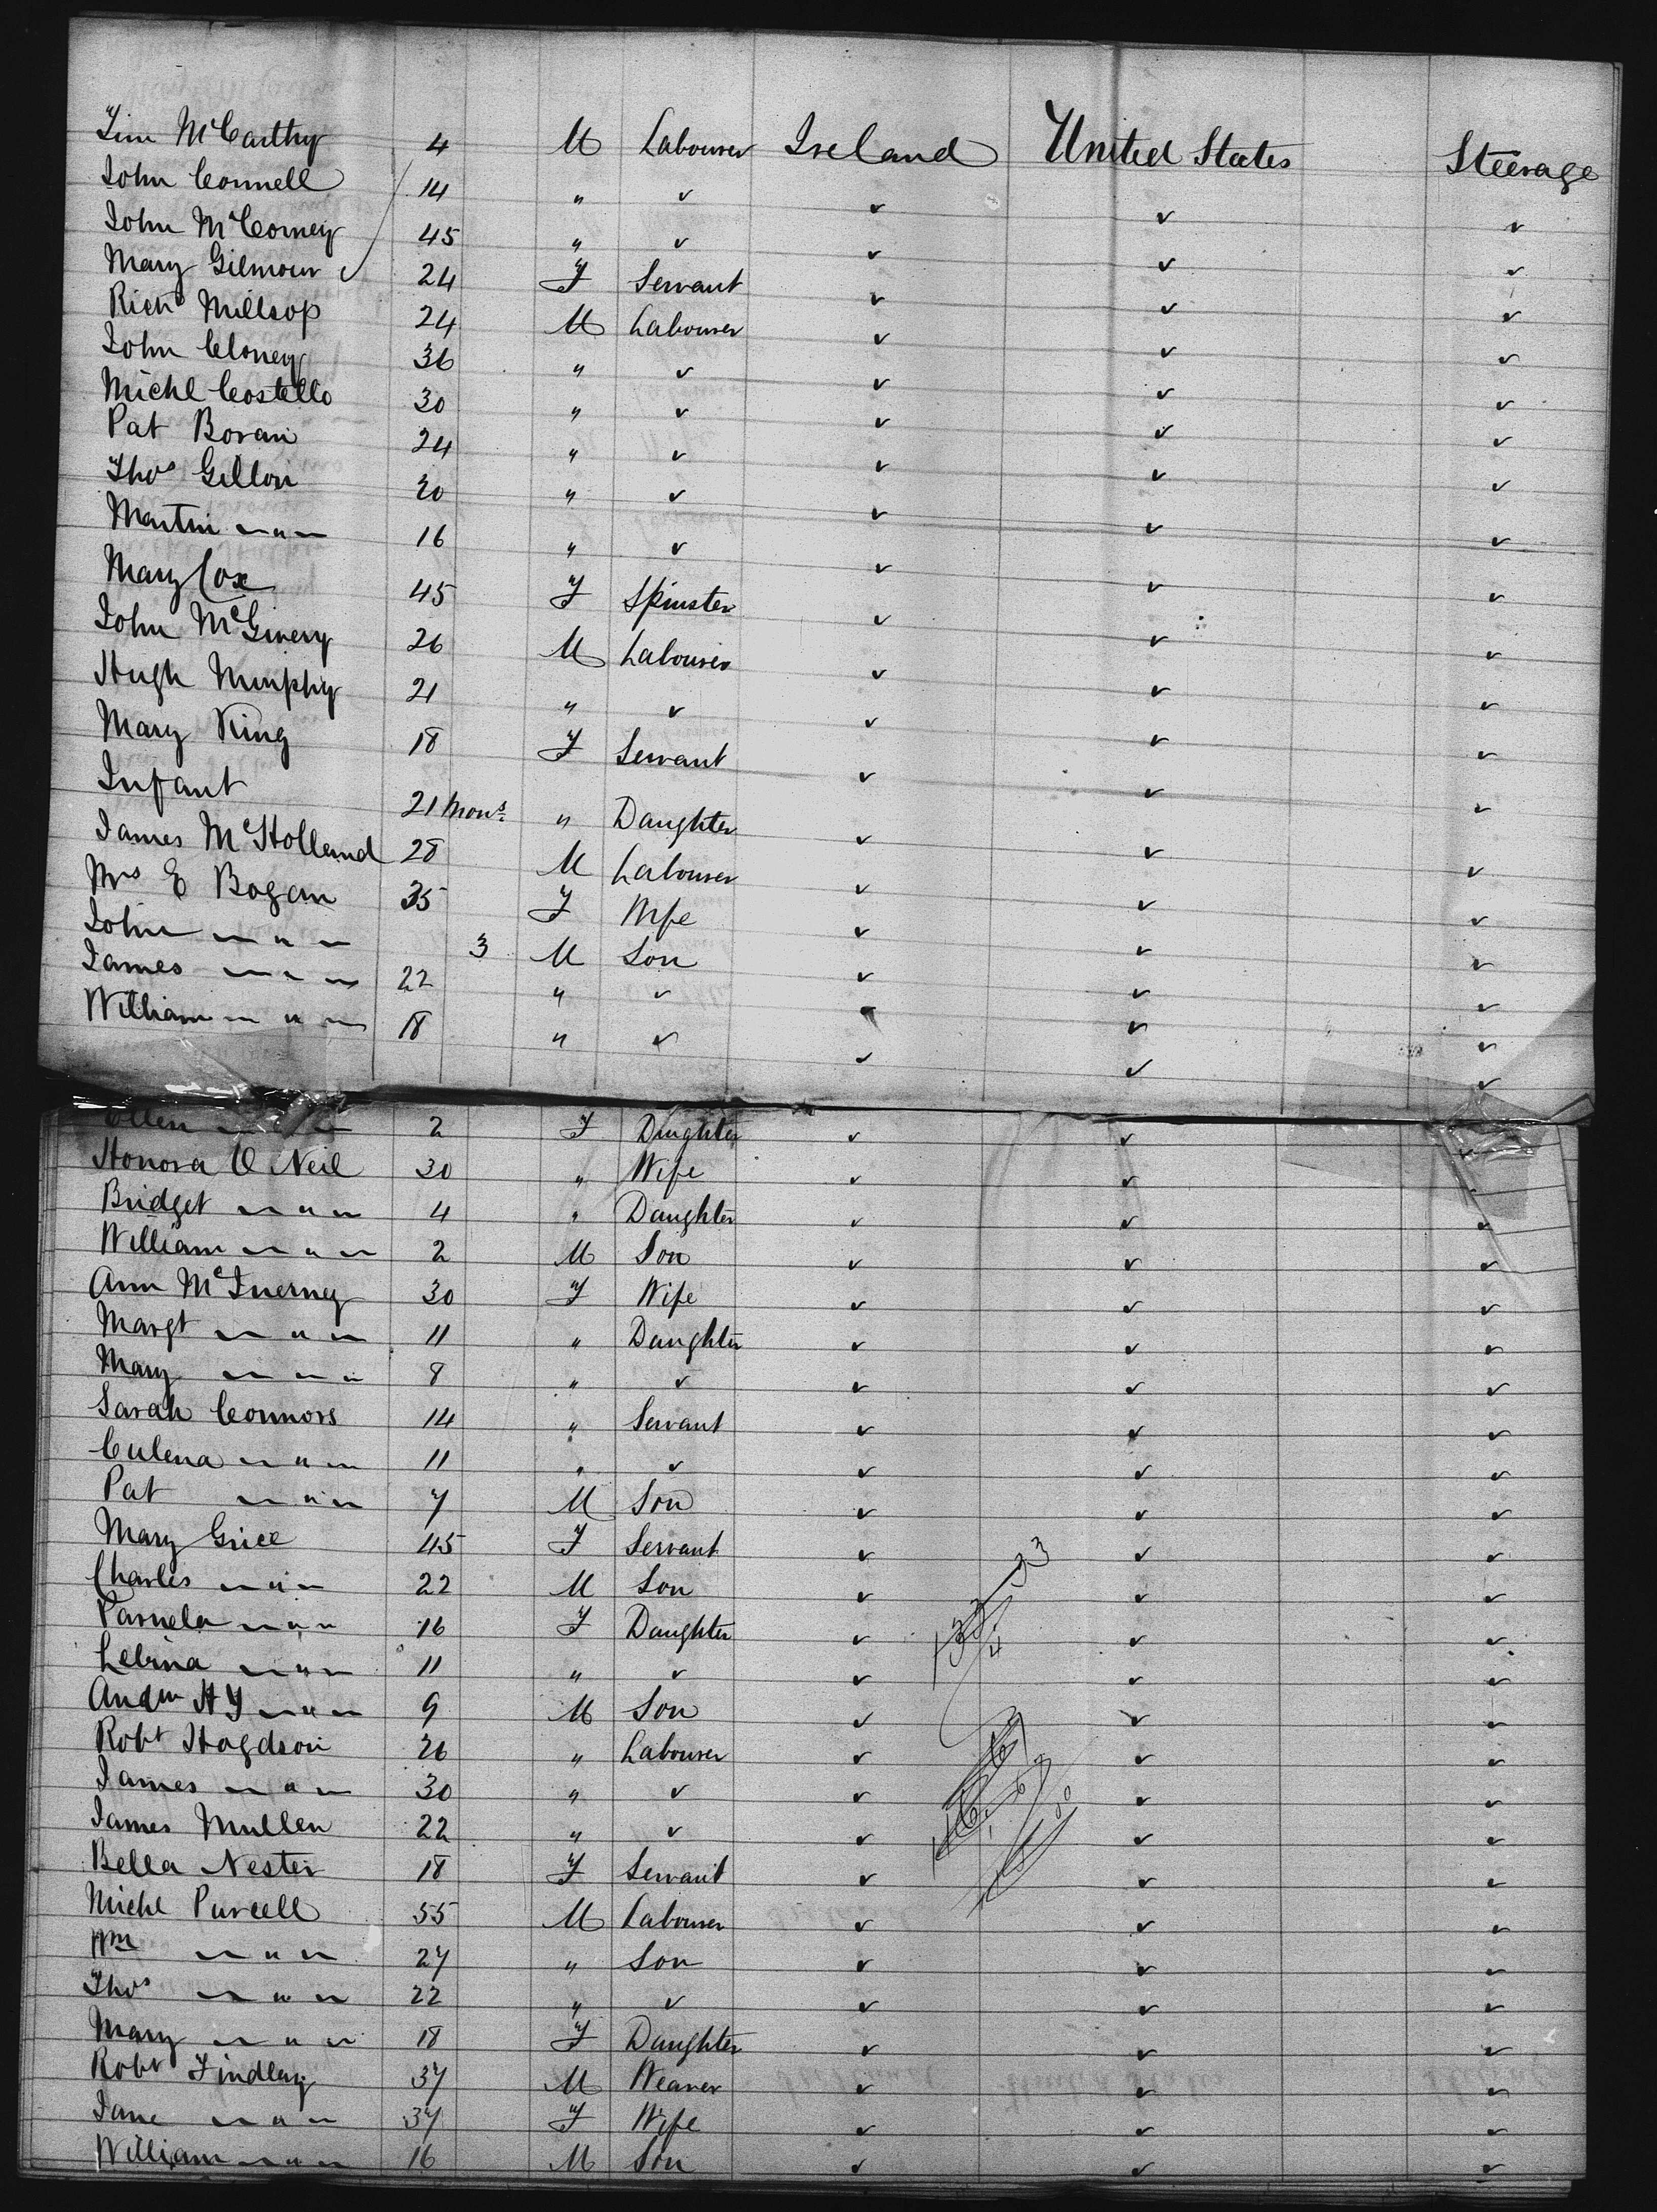 Tim McCarthy 4 M Labourer Ireland United States Steerage
John Connell 14 " ✓ ✓ ✓ ✓
John McCorney 45 " ✓ ✓ ✓ ✓
Mary Gilmour 24 F Servant ✓ ✓ ✓
Richd Millsop 24 M Labourer ✓ ✓ ✓
John Cloney 36 " ✓ ✓ ✓ ✓
Michl Costello 30 " ✓ ✓ ✓ ✓
Pat Boran 24 " ✓ ✓ ✓ ✓
Thos Gillon 20 " ✓ ✓ ✓ ✓
Martin — " — 16 " ✓ ✓ ✓ ✓
Mary Cox 45 F Spinster ✓ ✓ ✓
John McGivery 26 M Labourer ✓ ✓ ✓
Hugh Murphy 21 " ✓ ✓ ✓ ✓
Mary King 18 F Servant ✓ ✓ ✓
Infant 21 Mons " Daughter ✓ ✓ ✓
James McHolland 28 M Labourer ✓ ✓ ✓
Mrs E Bogan 35 F Wife ✓ ✓ ✓
John — " — 3 M Son ✓ ✓ ✓
James — " — 22 " ✓ ✓ ✓ ✓
William — " — 18 " ✓ ✓ ✓ ✓
Ellen — " — 2 F Daughter ✓ ✓ ✓
Honora O Neil 30 " Wife ✓ ✓ ✓
Bridget — " — 4 " Daughter ✓ ✓ ✓
William — " — 2 M Son ✓ ✓ ✓
Ann McInerney 30 F Wife ✓ ✓ ✓
Margt — " — 11 " Daughter ✓ ✓ ✓
Mary — " — 8 " ✓ ✓ ✓ ✓
Sarah Connors 14 " Servant ✓ ✓ ✓
Culena — " — 11 " ✓ ✓ ✓ ✓
Pat — " — 7 M Son ✓ ✓ ✓
Mary Grice 45 F Servant ✓ ✓ ✓
Charles — " — 22 M Son ✓ ✓ ✓
Pamela — " — 16 F Daughter ✓ ✓ ✓
Lebina — " — 11 " ✓ ✓ ✓ ✓
Andw H Y — " — 9 M Son ✓ ✓ ✓
Robt Hogdson 26 " Labourer ✓ ✓ ✓
James — " — 30 " ✓ ✓ ✓ ✓
James Mullen 22 " ✓ ✓ ✓ ✓
Bella Nester 18 F Servant ✓ ✓ ✓
Michl Purcell 55 M Labourer ✓ ✓ ✓
Wm — " — 27 " Son ✓ ✓ ✓
Thos — " — 22 " ✓ ✓ ✓ ✓
Mary — " — 18 F Daughter ✓ ✓ ✓
Robt Findlay 37 M Weaver ✓ ✓ ✓
Jane — " — 37 F Wife ✓ ✓ ✓
William — " — 16 M Son ✓ ✓ ✓